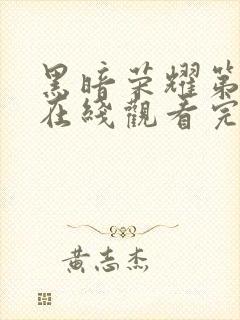 黑暗荣耀第
在线观看完
黄志杰